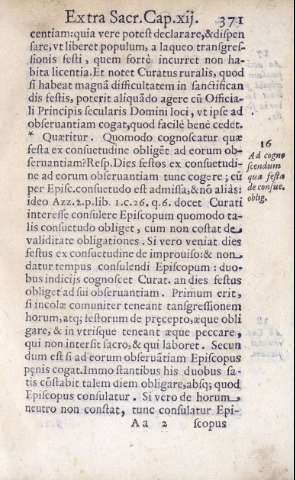 Extra Sacr. Cap. xij. 371
centiam: quia vere potest declarare, & dispen
sare, vt liberet populum, a laqueo transgres-
sionis festi, quem fortè incurret non ha-
bita licentia. Et notet Curatus ruralis, quod
si habeat magnā difficultatem in sanctifican
dis festis, poterit aliquādo agere cū Officia-
li Principis secularis Domini loci, vt ipse ad
obseruantiam cogat, quod facilè benè cedet.
* Quæritur. Quomodo cognoscatur quæ
festa ex consuetudine obligēt ad eorum ob-
seruantiam? Resp. Dies festos ex consuetudi-
ne ad eorum obseruantiam tunc cogere; cū
per Episc. consuetudo est admissa, & nō aliàs:
ideo Azz. 2. p. lib. 1. c. 26. q. 6. docet Curati
interesse consulere Episcopum quomodo ta-
lis consuetudo obliget, cum non constat de
validitate obligationes. Si vero veniat dies
festus ex consuetudine de improuiso: & non
datur tempus consulendi Episcopum: duo-
bus indicijs cognoscet Curat. an dies festus
obliget ad sui obseruantiam. Primum erit,
si incolæ comuniter teneant tansgressionem
horum, atq; festorum de præcepto, æque obli
gare, & in vtrisque teneant æque peccare,
qui non intersit sacro, & qui laboret. Secun
dum est si ad eorum obseruātiam Episcopus
pœnis cogat. Immo stantibus his duobus sa-
tis cōstabit talem diem obligare, absq; quod
Episcopus consulatur. Si vero de horum
neutro non constat, tunc consulatur Epi-
Aa 2 scopus
16
Ad cogno
scendum
quæ festa
de consue.
oblig.